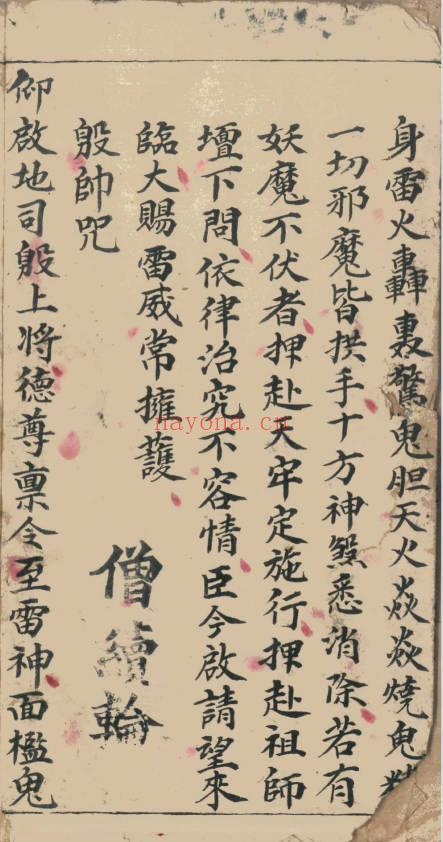 身雷火轟轟驚鬼胆天火焱焱燒鬼精
一切邪魔皆拱手十方神煞悉消除若有
妖魔不伏者押赴天牢定施行押赴祖師
壇下問依律治究不容情臣今啟請望來
臨大賜雷威常擁護
殷帥咒
僧續輪
仰啟地司殷上將德尊禀令至雷神面檻鬼
nayona.cn